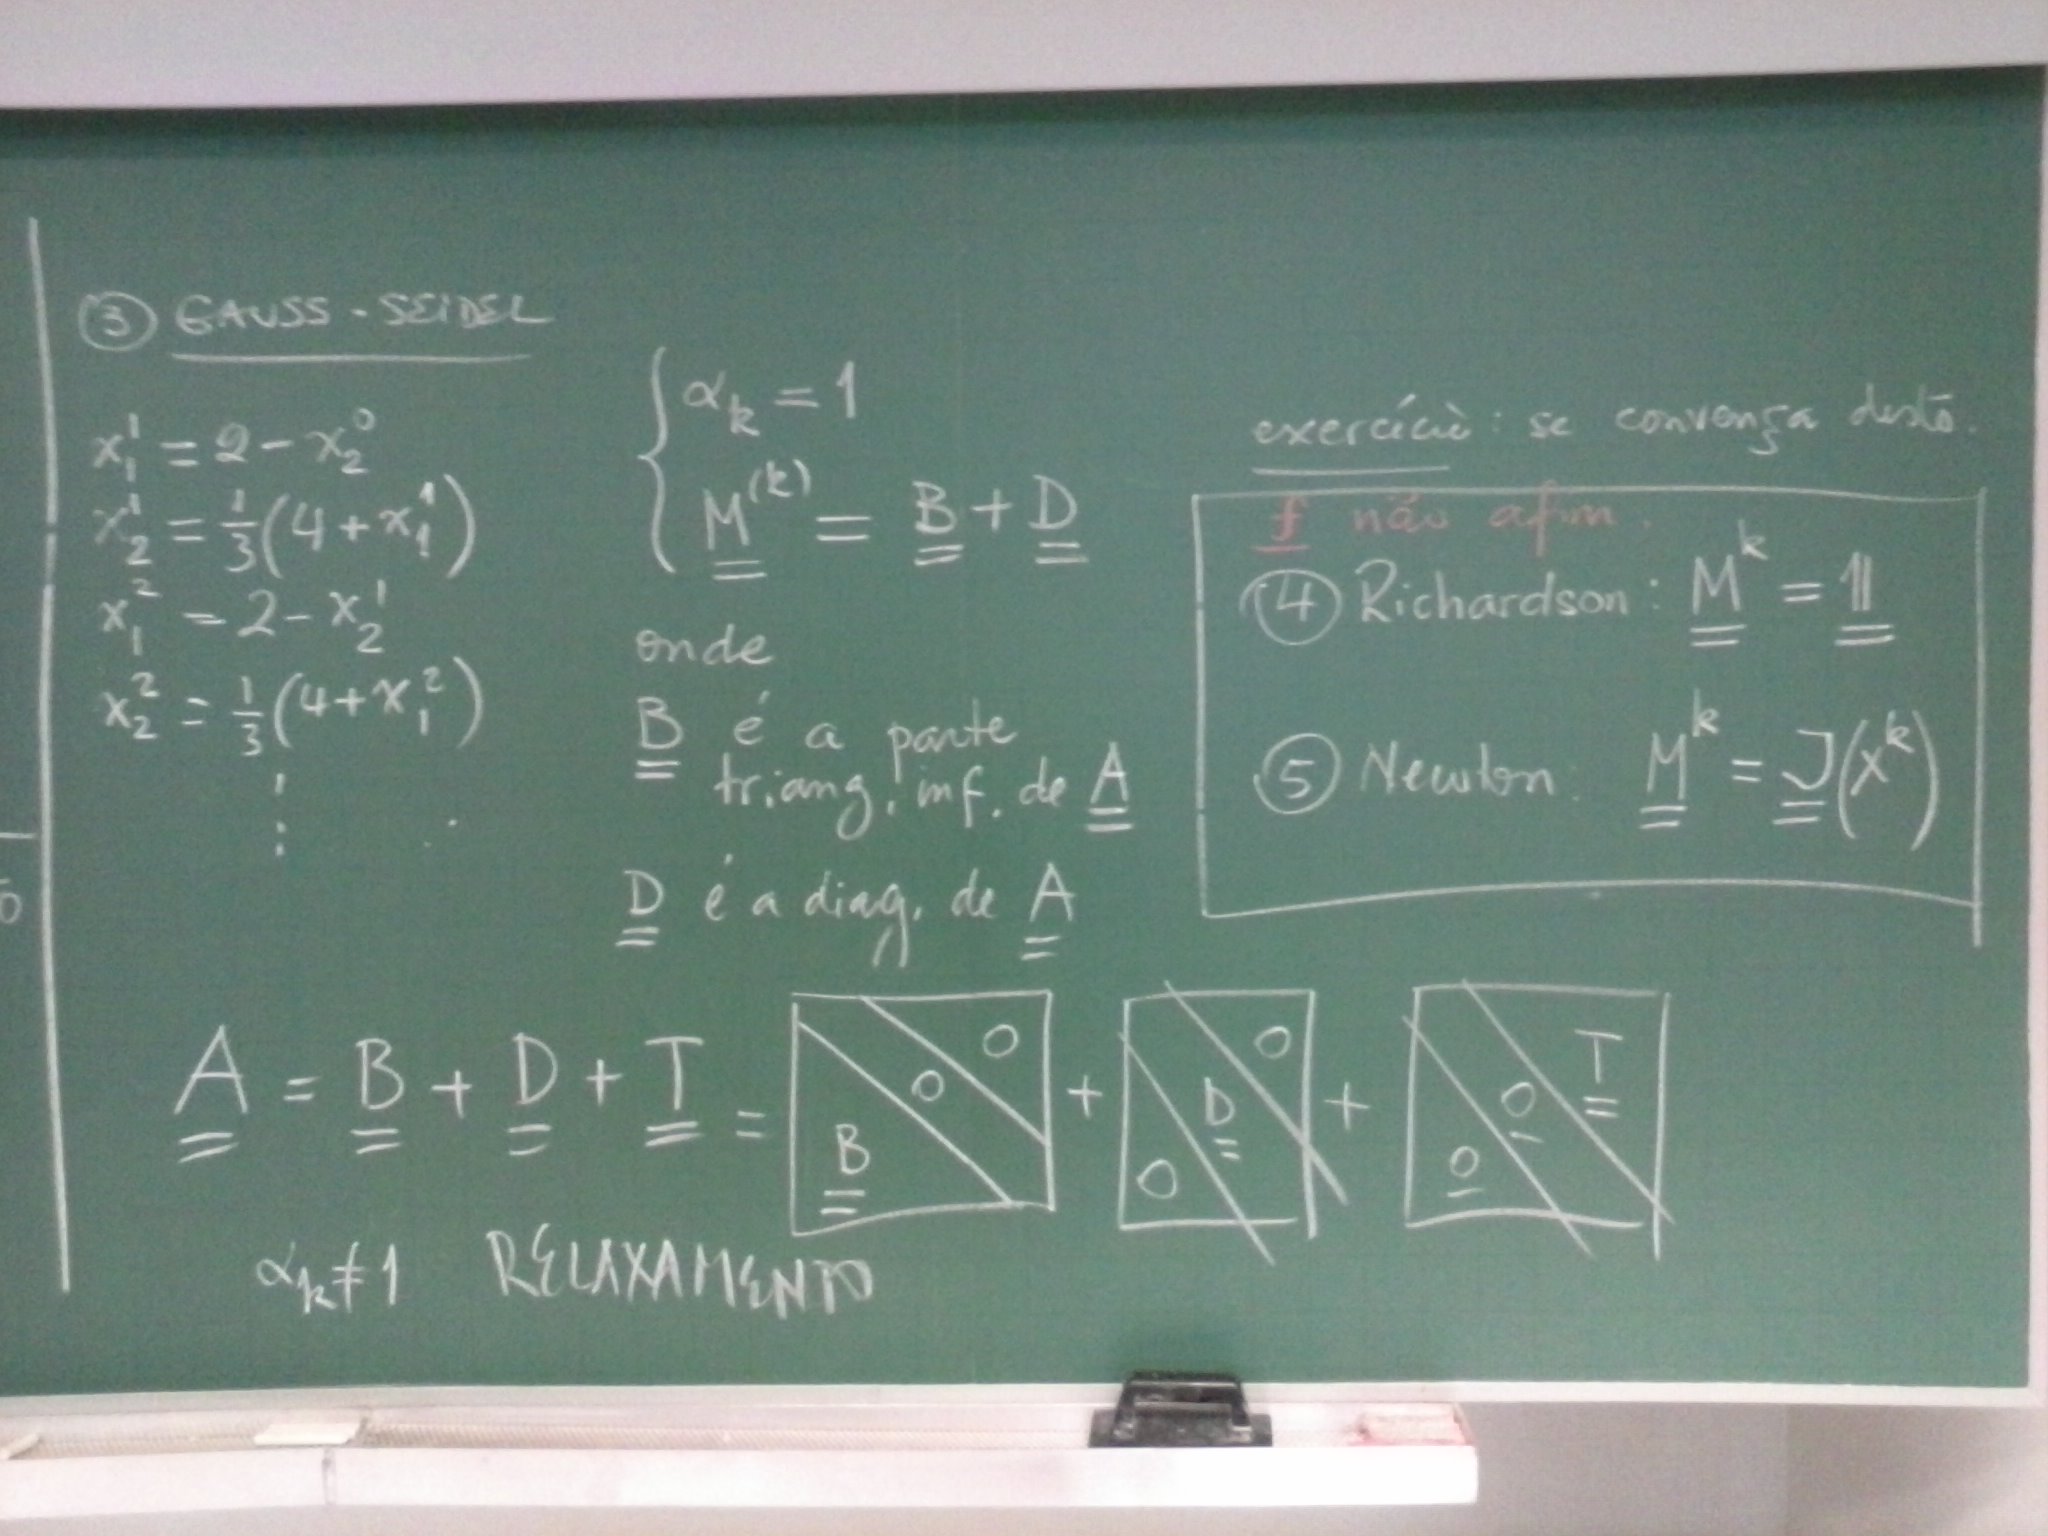 ③ GAUSS-SEIDEL
x₁¹ = 2 - x₂⁰
x₂¹ = 1/3 (4 + x₁¹)
x₁² = 2 - x₂¹
x₂² = 1/3 (4 + x₁²)
⋮
{ αₖ = 1
M⁽ᵏ⁾ = B + D
onde
B é a parte
triang. inf. de A
D é a diag. de A
exercício: se convença disto.
f não afim.
④ Richardson: Mᵏ = 1
⑤ Newton: Mᵏ = J(xᵏ)
A = B + D + T = B 0 0 + 0 D 0 + 0 0 T
αₖ ≠ 1 RELAXAMENTO